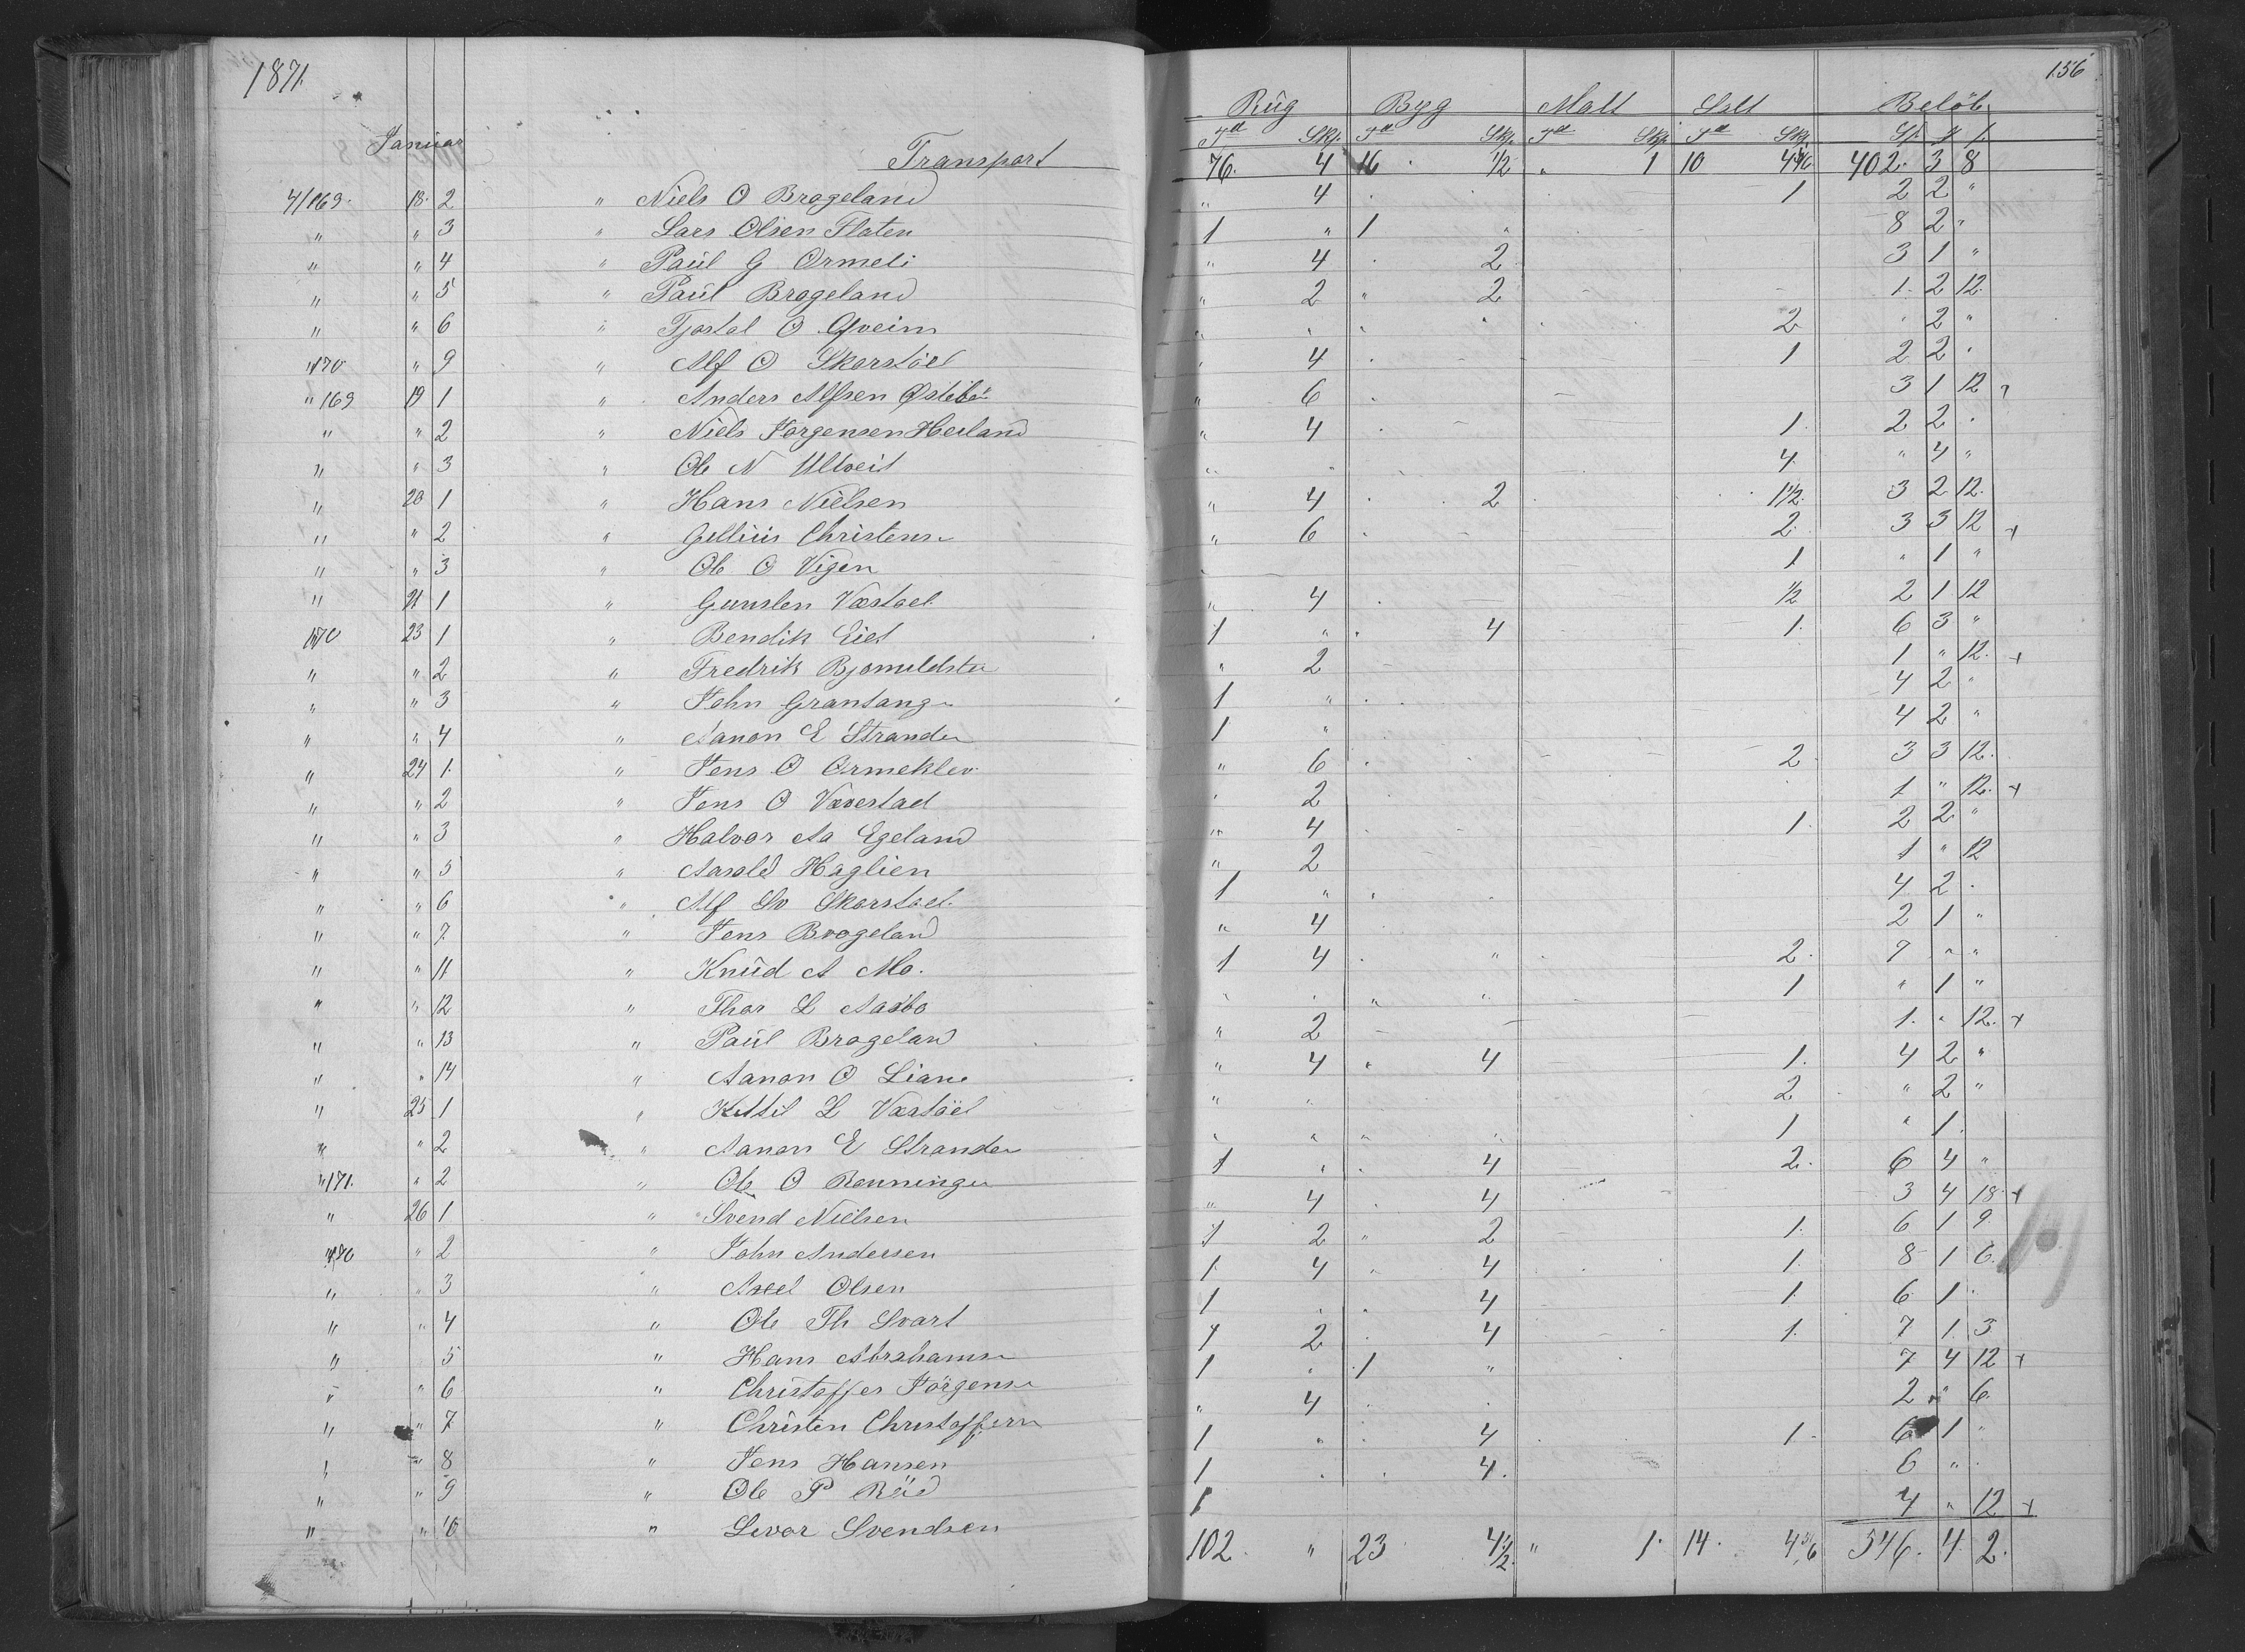 1871. 156
Rüg Byg Malt Salt Beløb
Januar Tdl Skp. Tdl Skp. Tdl Skp. Tdl Skp. Sp. ƒ ſ.
Transport 76. 4 16 1/2 " 1 10 402. 3 8
4/169. 18. 2 " Niels O Brageland " 4 1 2 2 "
" " 3 " Lars Olsen Flaten 1 " 1 " 8 2 "
" " 4 " Paül G Ormeli " 4 2 3 1 "
" " 5 " Paül Brageland " 2 " 2 1. 2 12.
" " 6 " Tjostol O Qveim " " " " 2 " 2 "
"170 " 9 " Alf O Skarstöel " 4 1 2 2 "
"169 19 1 " Anders Alfsen " 6 3 1 12
" " 2 " Niels Jörgensen Heiland " 4 1. 2 2 "
" " 3 " Ole N Ulveit " " 4. " 4 "
" 20 1 " Hans Nielsen " 4 2 1 1/2. 3 2 12.
" " 2 " Gellius Christens " 6 2. 3 3 12 +
" " 3 " Ole O Vigen 1 " 1 "
" 21 1 " Gunsten Væstøel " 4 1/2 2 1 12
170 23 1 " Bendik Eiet 1 " " 4 1. 6 3 "
" " 2 " Fredrik " 2 1 " 12. +
" " 3 " John Grantange 1 " 4 2 "
" " 4 " Aanon E Stranden 1 " 4 2 "
" 24 1. " Jens O Ormeklev " 6 2 3 3 12.
" " 2 " Jens O Væverstad " 2 1 " 12. +
" " 3 " Halvor Aa Egeland " 4 1. 2 2 "
" " 5 " Aasold Haglien " 2 1 " 12
" " 6 " Alf Sv Skarstøel 1 " " 4 2 "
" " 7 " Jens Brageland " 4 2 1 "
" " 11 " Knüd A Mo. 1 4 " 2. 7 " "
" " 12 " Thor L Aasbø " " " " 1 " 1 "
" " 13 " Paül Brageland " 2 1. " 12. +
" " 14 " Aanon O Liane " 4 " 4 1. 4 2 "
" 25 1 " Kittil L Væstöel " " 2 " 2 "
" " 2 " Aanon E Stranden " " " " 1 " 1
"171. " 2 " Ole O Rønningen 1 " " 4 2. 6 4 "
" 26 1 " Svend Nielsen " 4 " 4 3 4 18 +
170 " 2 " John Andersen 1 2 " 2 1. 6 1 9.
" " 3 " Axel Olsen 1. 4 " 4 1. 8 1 6.
" " 4 " Ole Th Svart 1 " " 4 1. 6 1 "
" " 5 " Hans Abrahams 1 2 4 1. 7 1. 3
" " 6 " Christoffer Jörgens 1 " 1 " 7 4 12 +
" " 7 " Christen Christoffern " 4 2 " 6.
" " 8 " Jens Hansen 1 " 4 1 6 1 "
" " 9 " Ole P Röed 1 " 4. 6 " "
" " 10 " Levor Svendsen 1 4 " 12 +
102. " 23 4 1/2. " 1. 14. 4 5/6 546. 4. 2.